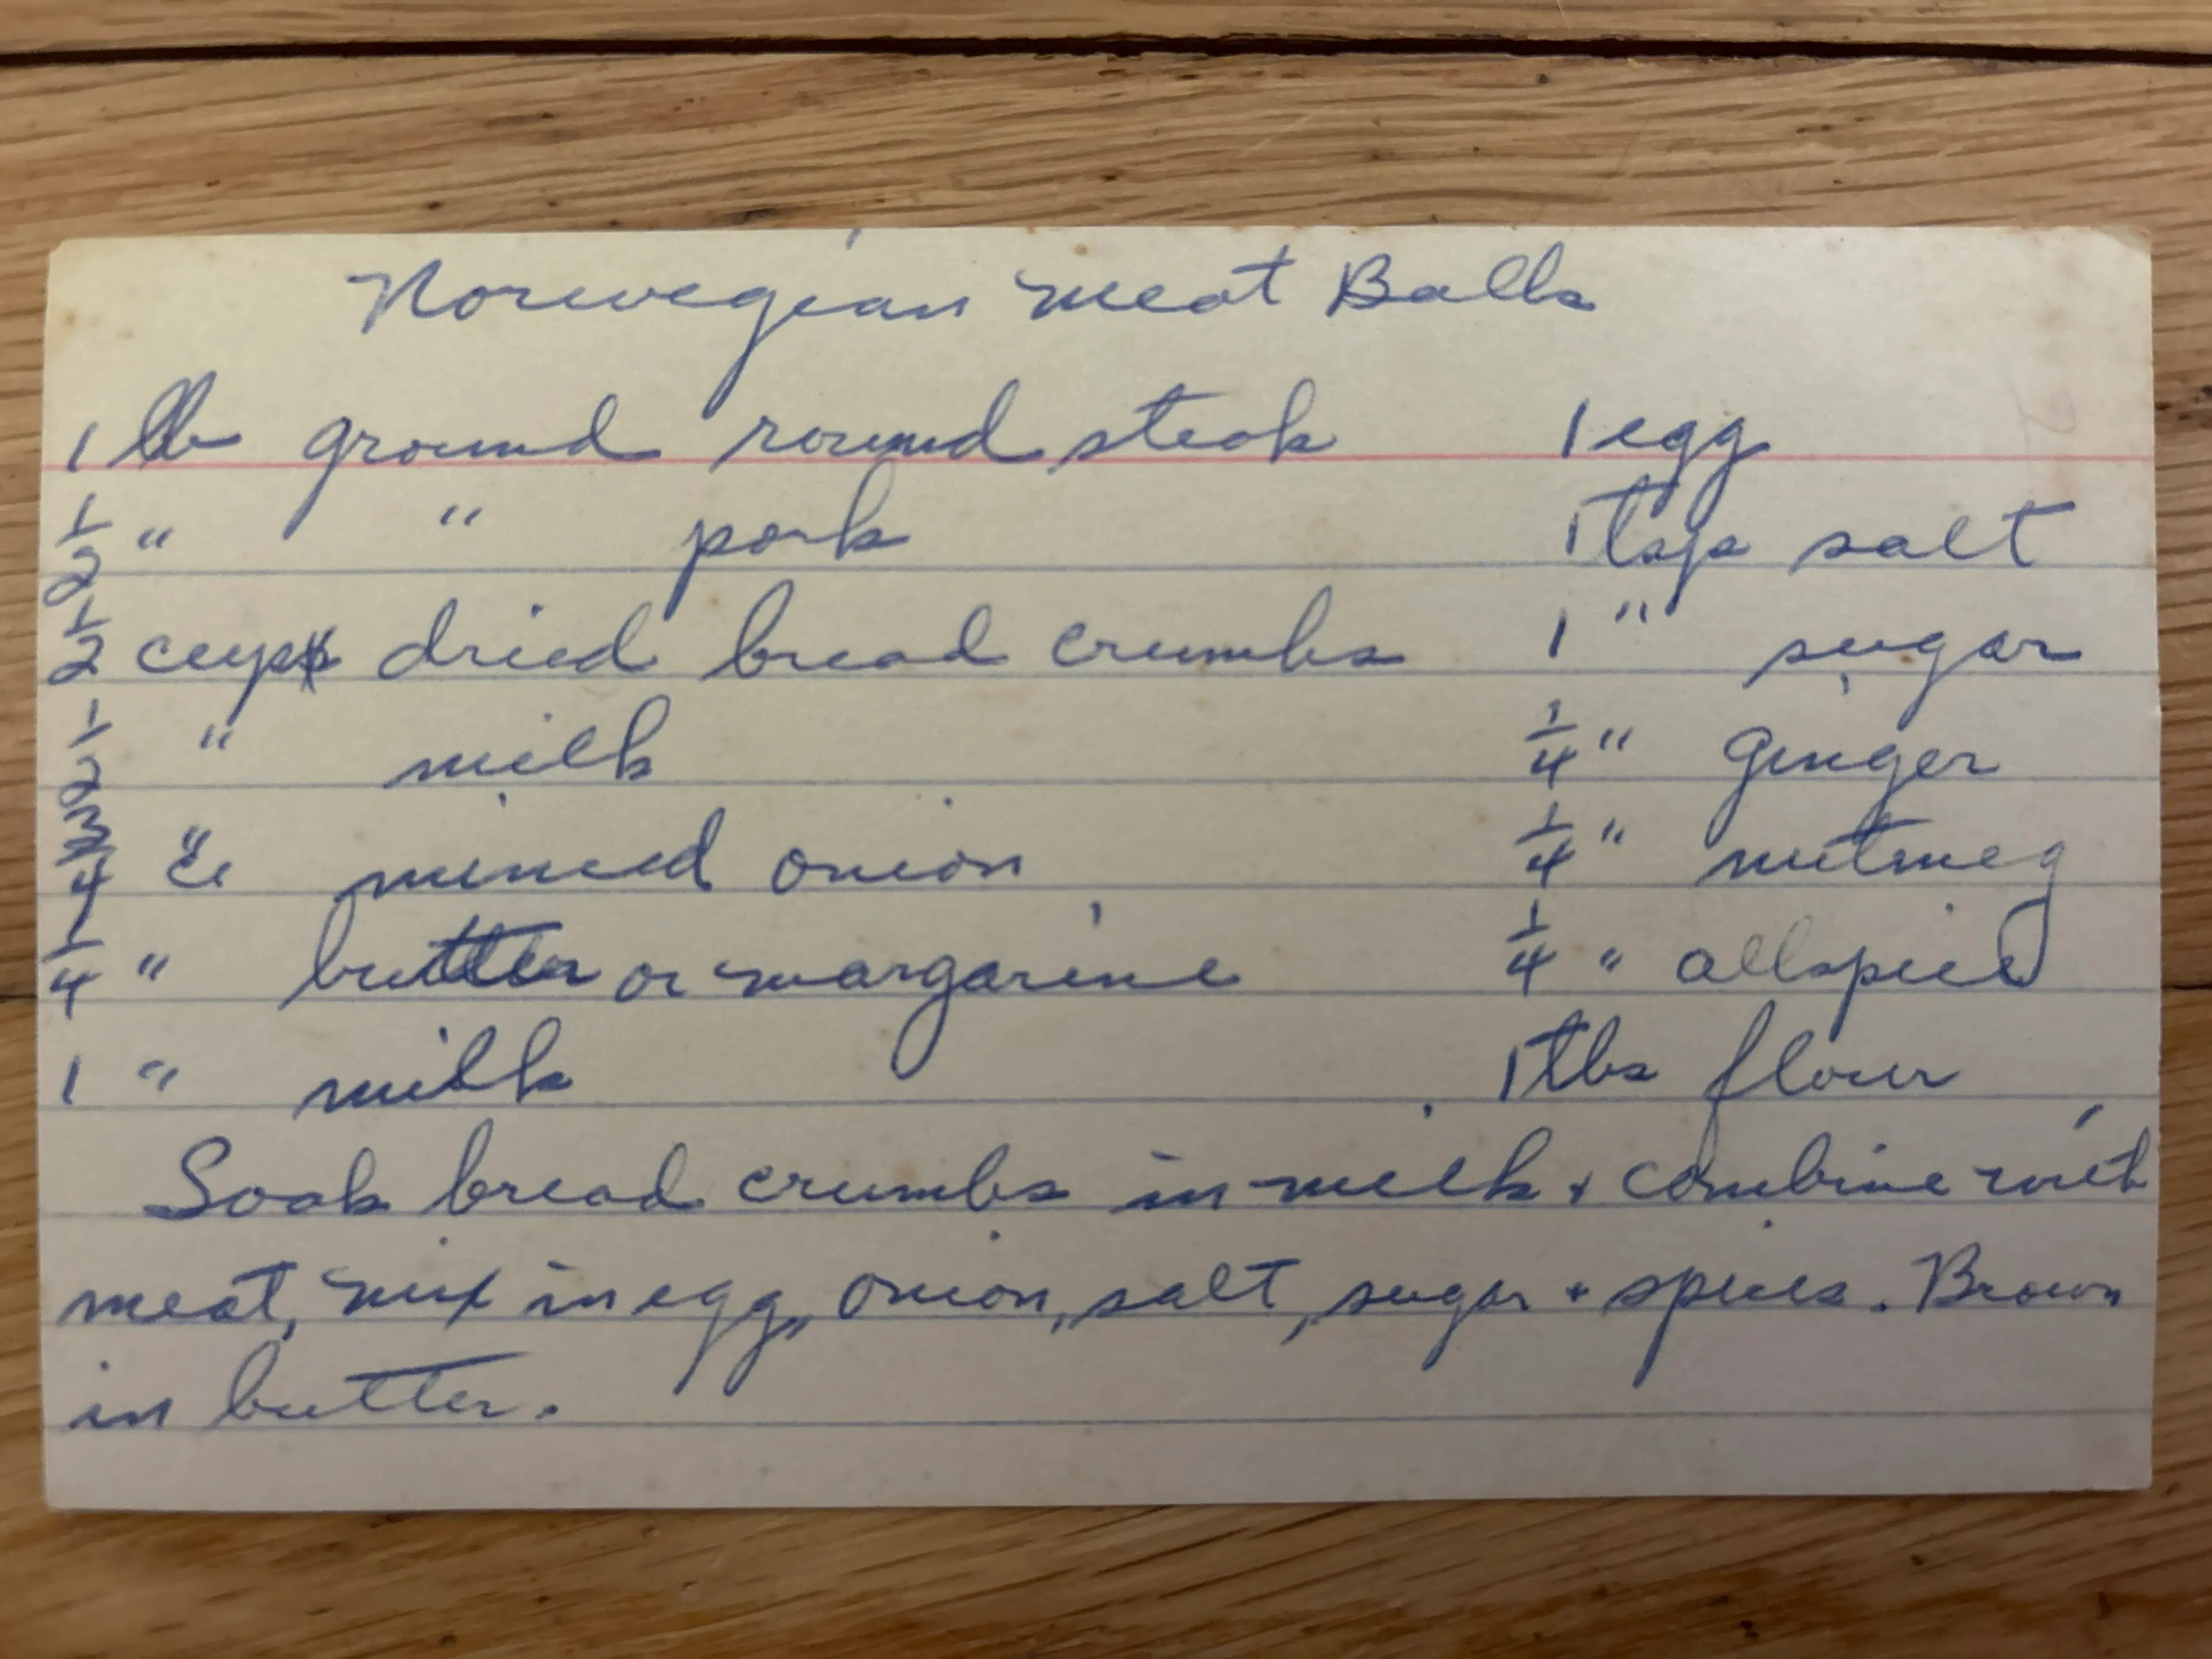 Norwegian Meat Balls
1 lb ground round steak 1 egg
1/2 " " pork 1 tsp salt
1/2 cup dried bread crumbs 1 " sugar
1/2 " milk 1/4 " Ginger
3/4 " minced onion 1/4 " nutmeg
1/4 " butter or margarine 1/4 " allspice
1 " milk 1 tbs flour
Soak bread crumbs in milk + combine with
meat, mix in egg, onion, salt, sugar + spices. Brown
in butter.